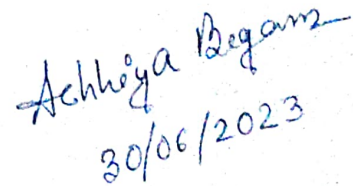 Achhiya Begam
30/06/2023